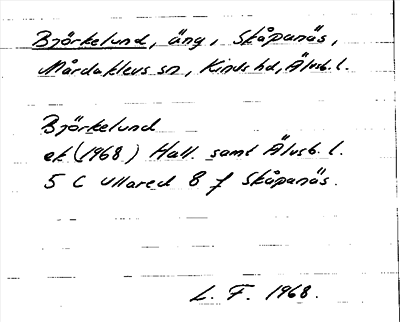 Björkelund, äng, Skåpanäs,
Mårdaklevs sn, Kinds hd, Älvsb. l.
Björkelund
ek (1968) Hall. samt Älvsb. l.
5 C Ullared 8 f Skåpanäs.
L. F. 1968.